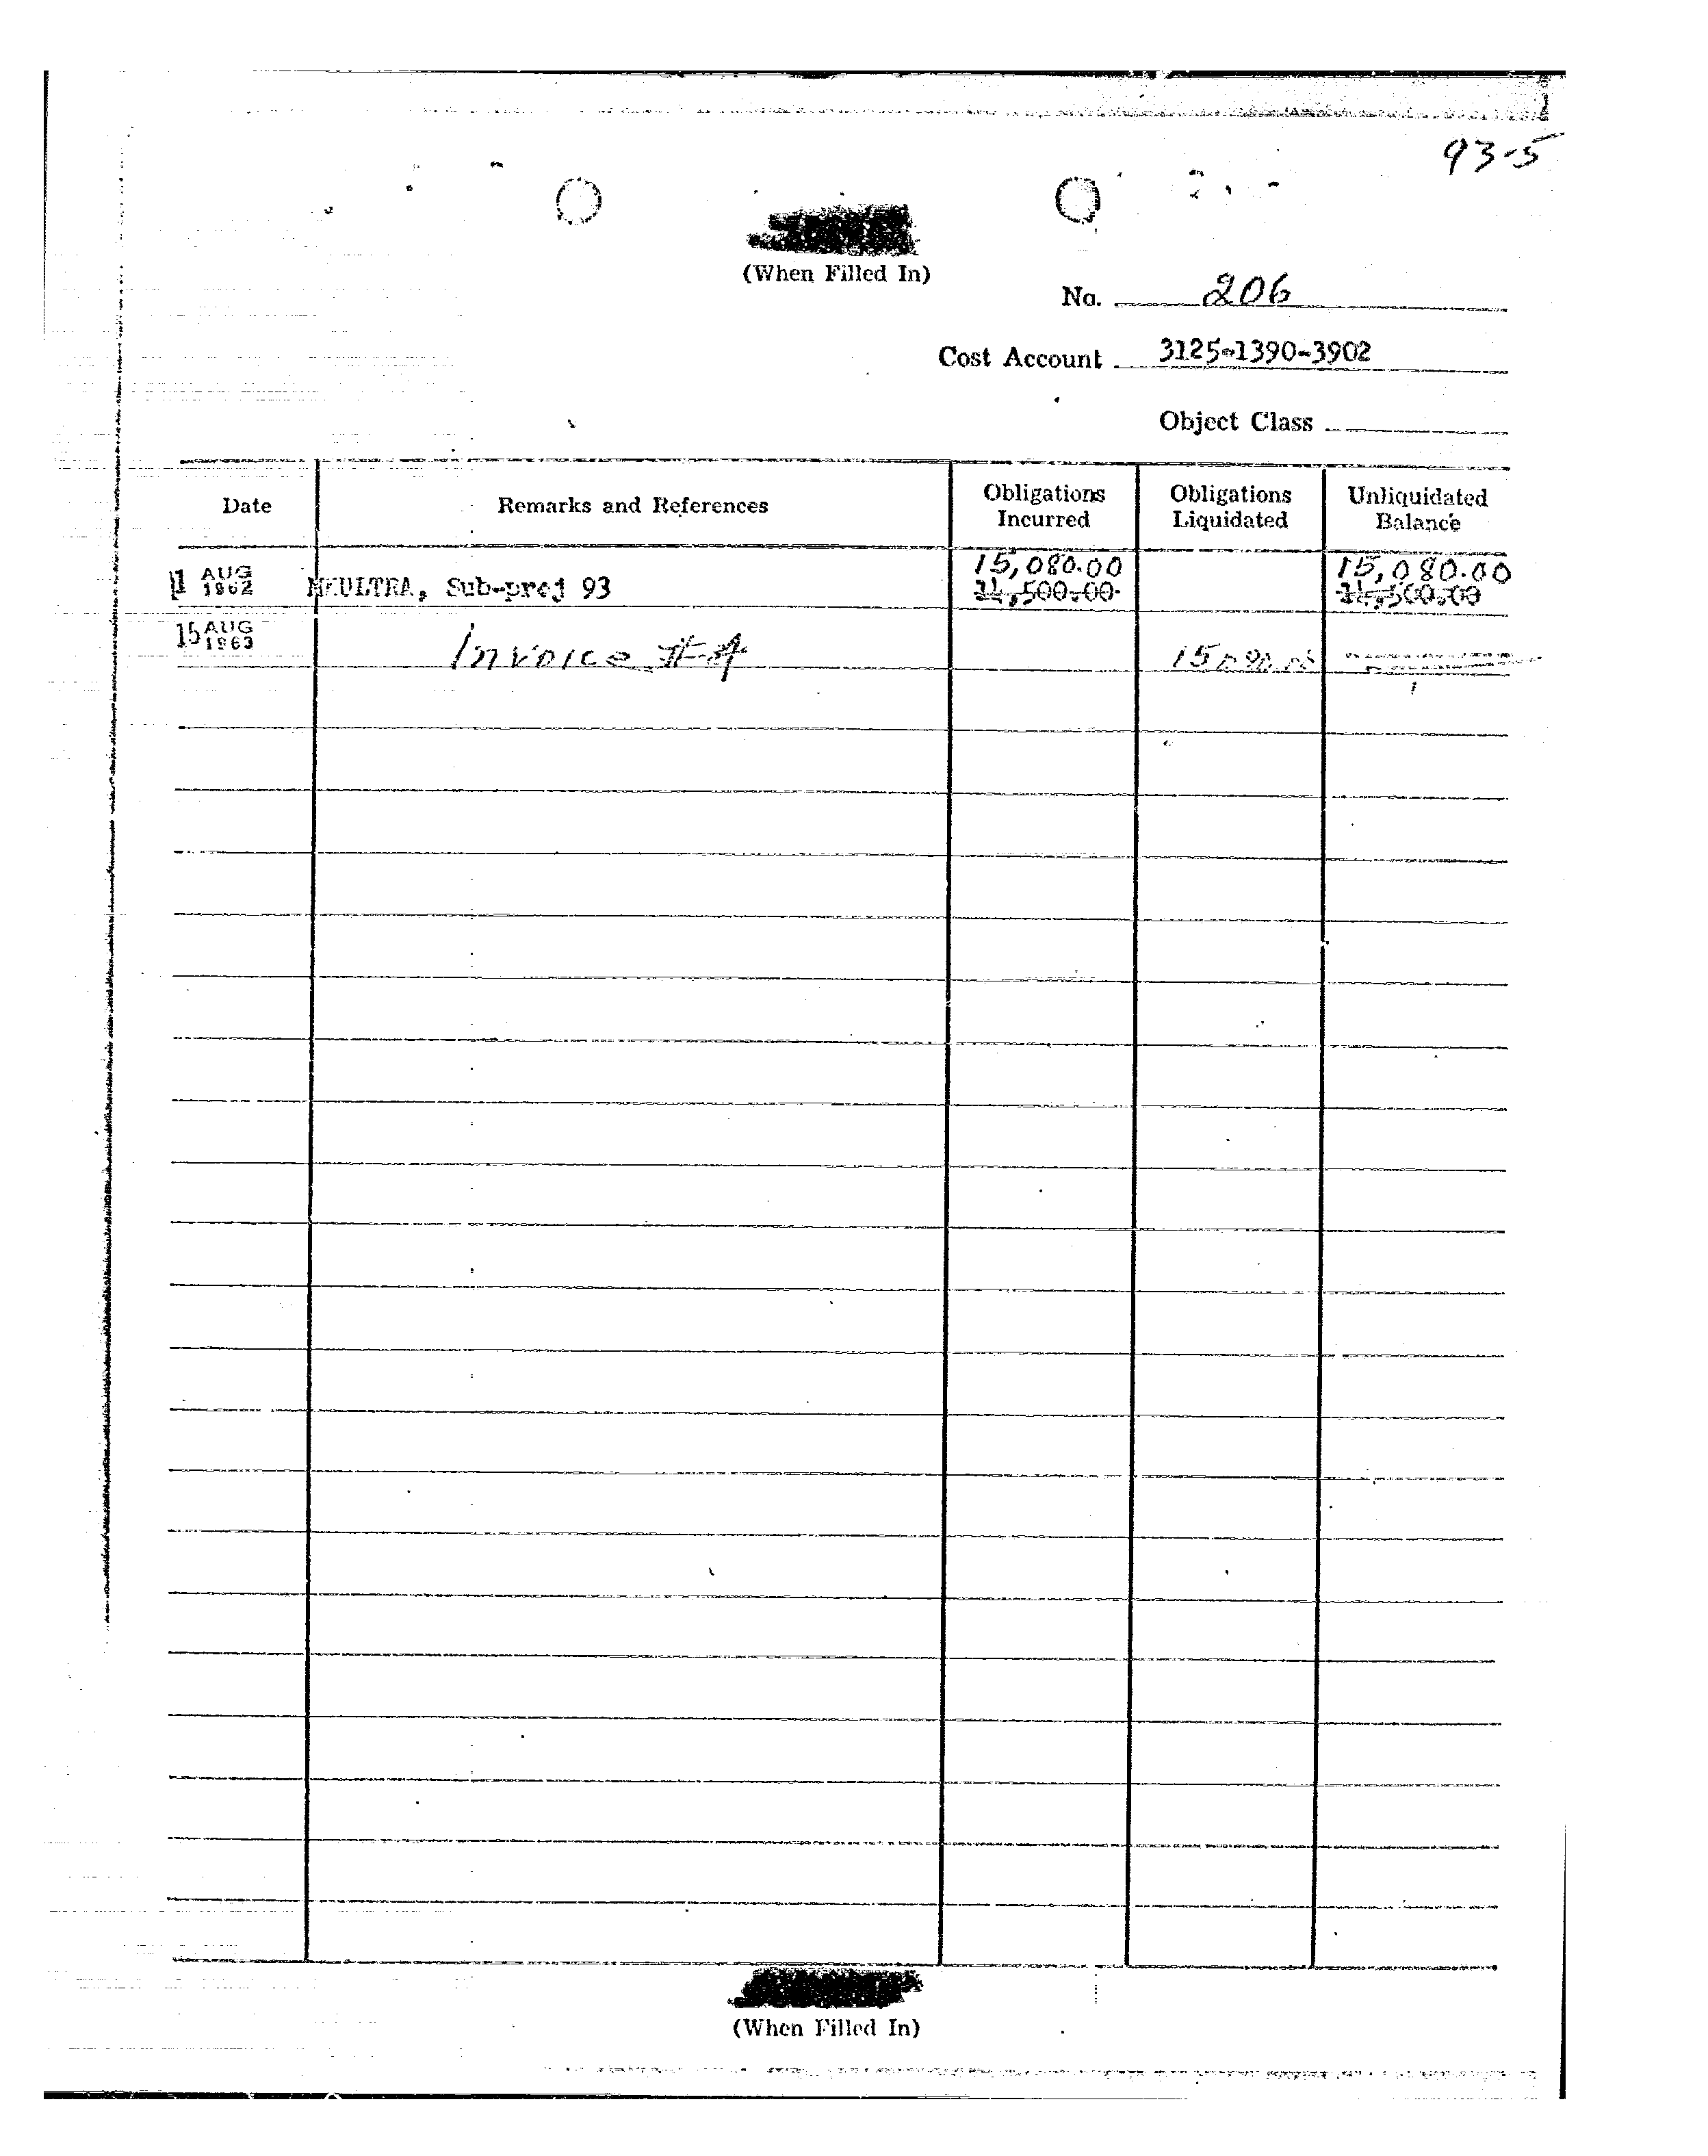 93-5
(When Filled In)
No. 206
Cost Account 3125-1390-3902
Object Class
Date Remarks and References Obligations Incurred Obligations Liquidated Unliquidated Balance
15,080.00 15,080.00
1 AUG 1962 MKULTRA, Sub-proj 93 ,500.00 ,500.00
15 AUG 1963 Invoice #4
(When Filled In)